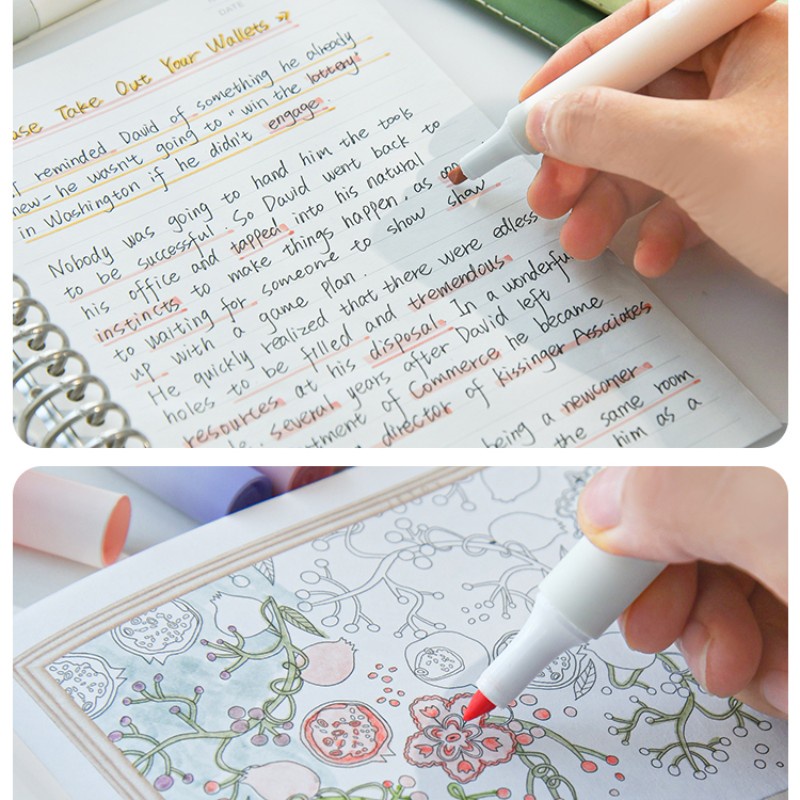 DATE
Take Out Your Wallets »
I reminded David of something he already
new-he wasn't going to "win the lottery"
in Washington if he didn't engage.
Nobody was going to hand him the tools
to be successful. So David went back to
his office and tapped into his natural
instincts to make things happen, as opp
to waiting for someone to show show
up with a game plan.
He quickly realized that there were edless
holes to be filled and tremendous
resources at his disposal. In a wonderful
several years after David left
tment of Commerce he became
director of kissinger Associates
being a newcomer
the same room
him as a